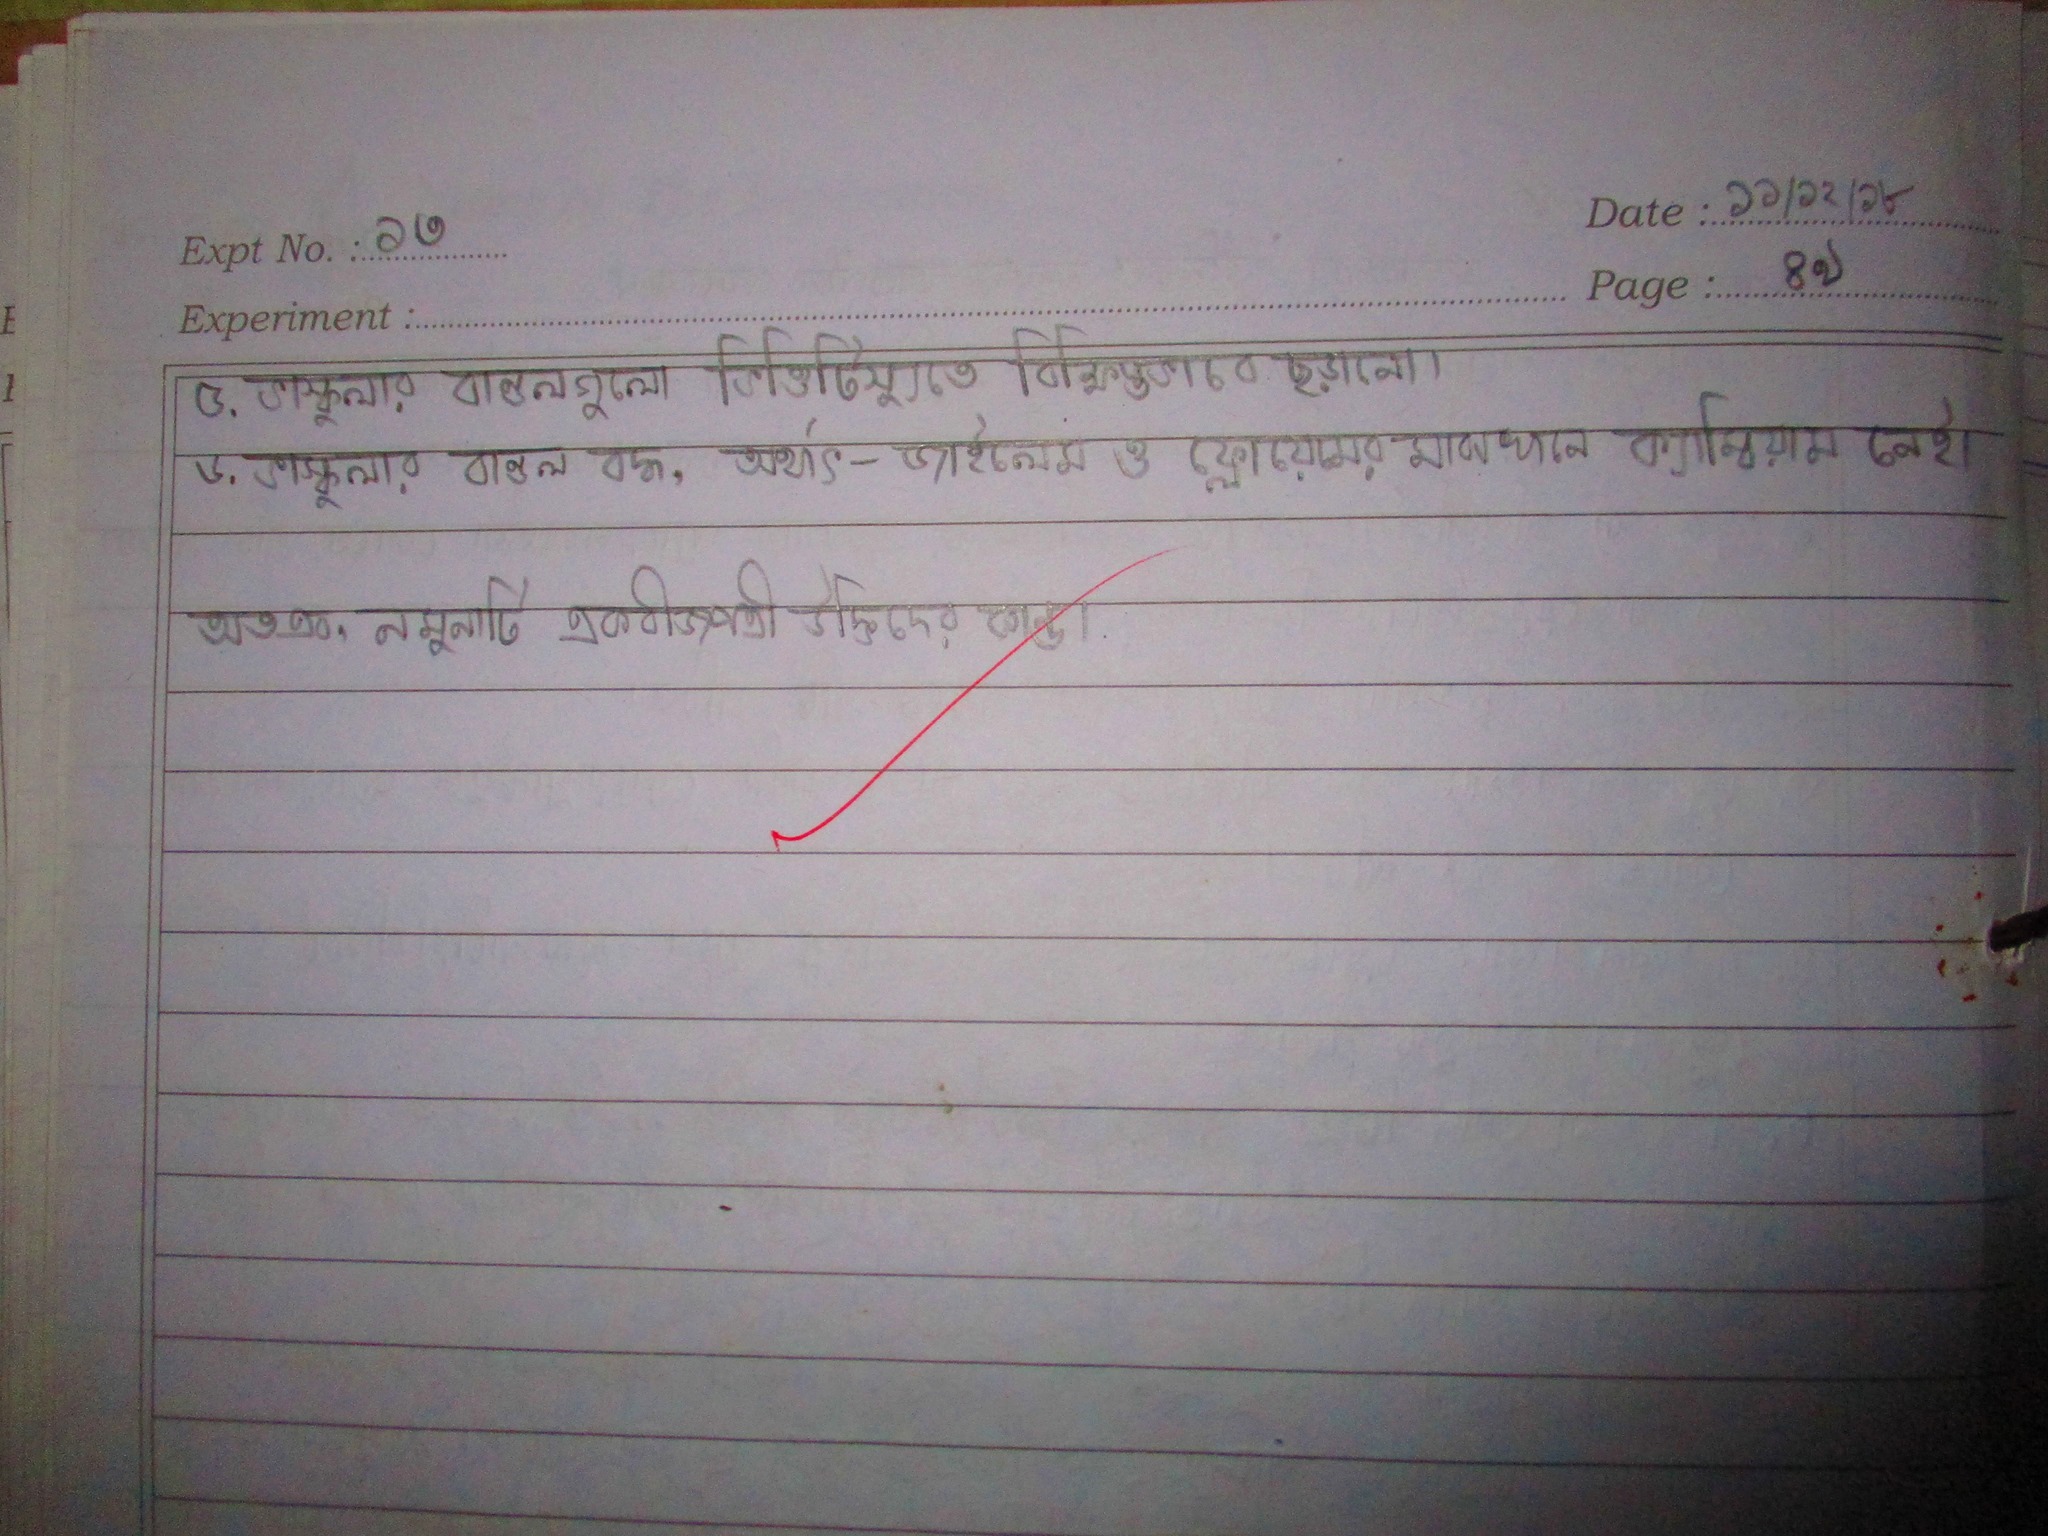 Date : ১১/১২/১৮
Expt No. : ১৩
Page : ৪৩
Experiment :
৫. ভাস্কুলার বান্ডলগুলো ভিত্তিটিস্যুতে বিক্ষিপ্তভাবে ছড়ানো।
৬. ভাস্কুলার বান্ডল বদ্ধ, অর্থাৎ- জাইলেম ও ফ্লোয়েমের মাঝখানে ক্যাম্বিয়াম নেই।
অতএব, নমুনাটি একবীজপত্রী উদ্ভিদের কান্ড।